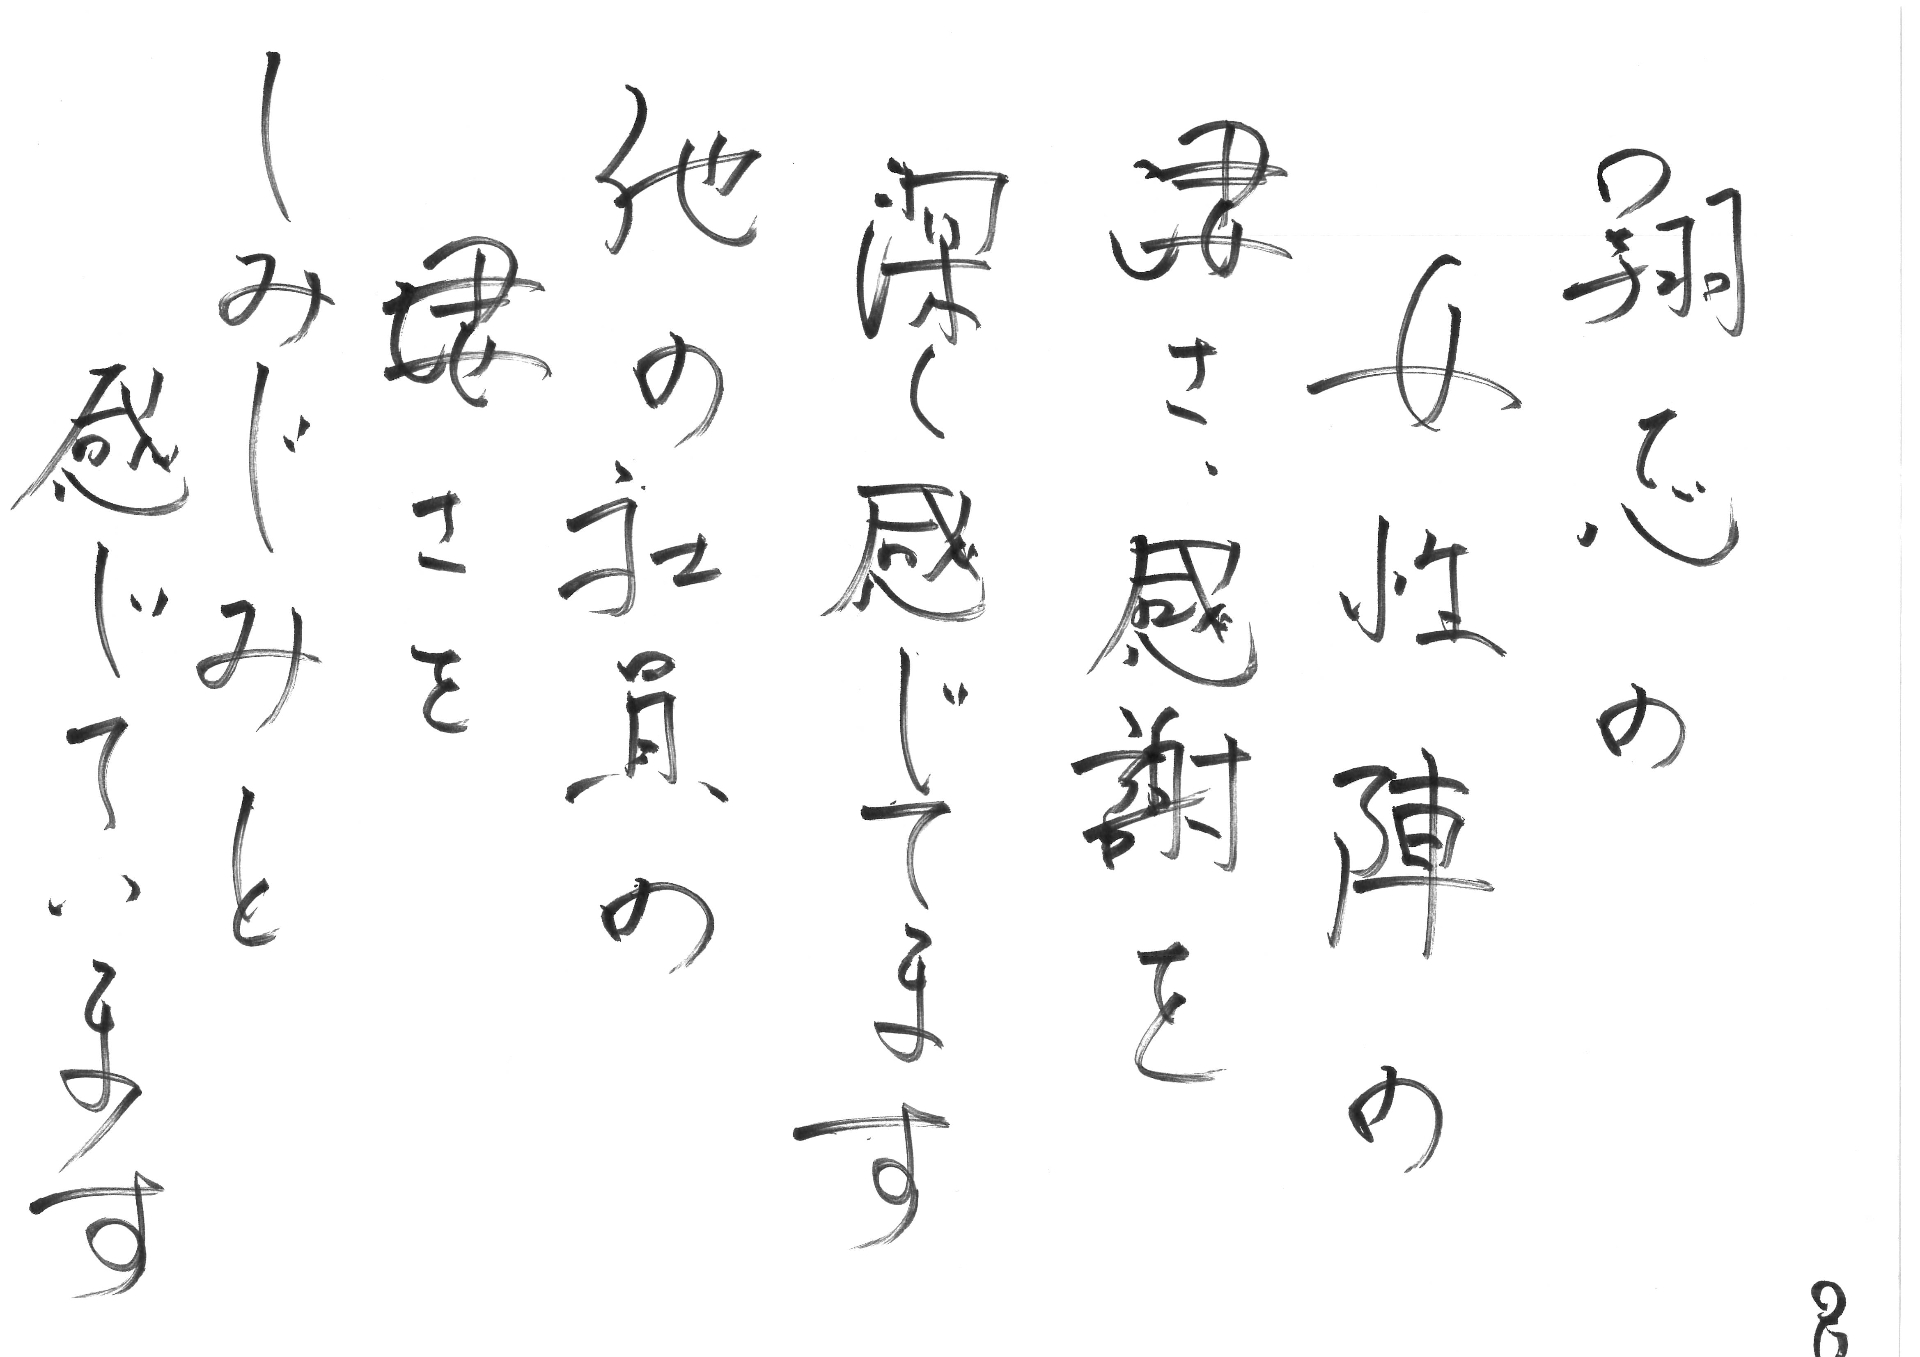 の
女性陣の
凄さ、感謝を
深く感じてます
他の社員の
凄さを
しみじみと
感じています
8